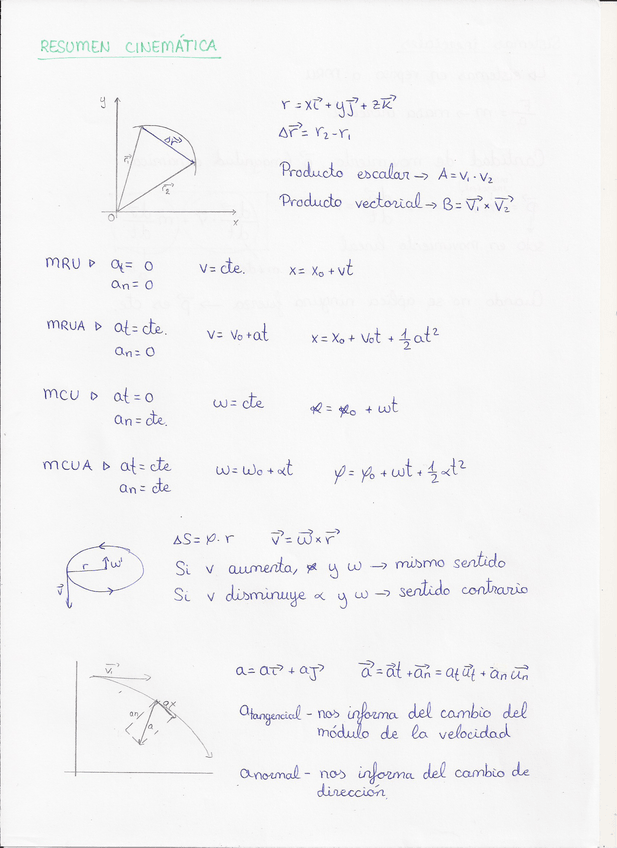 RESUMEN CINEMÁTICA
y
r = xi⃗ + yj⃗ + zk⃗
Δr⃗ = r₂ - r₁
Δr⃗
r⃗₁
r⃗₂
O
x
Producto escalar → A = v₁ · v₂
Producto vectorial → B = v⃗₁ × v⃗₂
MRU ▷ at = 0 v = cte. x = x₀ + vt
an = 0
MRUA ▷ at = cte. v = v₀ + at x = x₀ + v₀t + 1/2 at²
an = 0
MCU ▷ at = 0 ω = cte φ = φ₀ + ωt
an = cte.
MCUA ▷ at = cte ω = ω₀ + αt φ = φ₀ + ωt + 1/2 αt²
an = cte
ΔS = φ · r v⃗ = ω⃗ × r⃗
r ω
v⃗
Si v aumenta, α y ω → mismo sentido
Si v disminuye α y ω → sentido contrario
v⃗₁
a = ai⃗ + aj⃗ a⃗ = a⃗t + a⃗n = at u⃗t + an u⃗n
an a
atangencial - nos informa del cambio del
módulo de la velocidad
anormal - nos informa del cambio de
dirección.